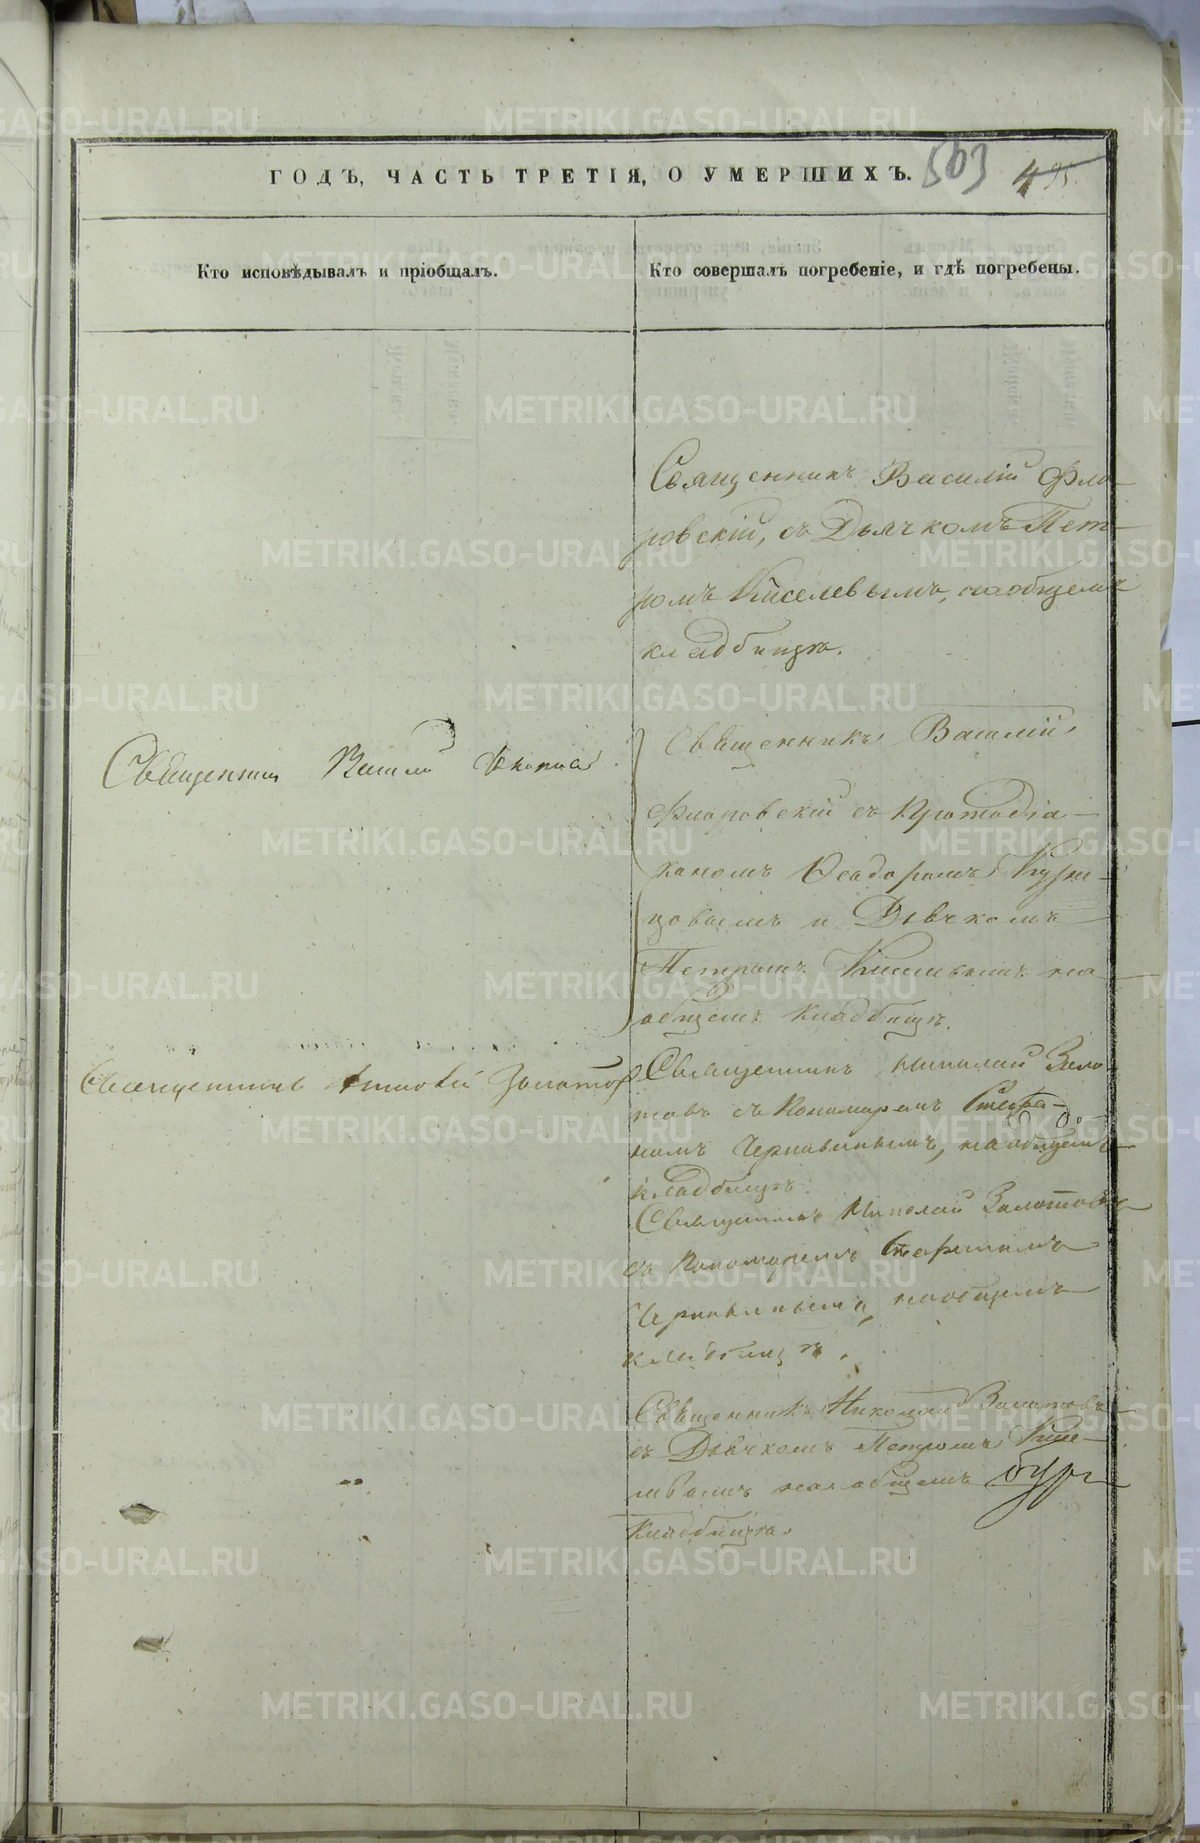 ГОДЪ, ЧАСТЬ ТРЕТІЯ, О УМЕРШИХЪ.
503 495
Кто исповѣдывалъ и пріобщалъ.
Кто совершалъ погребеніе, и гдѣ погребены.
Священникъ Василій Фло-
ровскій, съ Дьячкомъ Пет-
ромъ Киселевымъ, на общемъ
кладбищѣ.
Священникъ Василій
Священникъ Василій
Флоровскій съ Протодіа-
кономъ Ѳеодоромъ
и Дьячкомъ
Петромъ Киселевымъ на
общемъ кладбищѣ.
Священникъ Николай Золотовъ
Священникъ Николай Золо-
товъ съ Пономаремъ Стефа-
номъ Чернавинымъ, на общемъ
кладбищѣ.
Священникъ Николай Золотовъ
съ Пономаремъ Стефаномъ
Чернавинымъ, на общемъ
кладбищѣ.
Священникъ Николай Золотовъ
съ Дьячкомъ Петромъ Кисе-
левымъ на общемъ
кладбищѣ.
METRIKI.GASO-URAL.RU